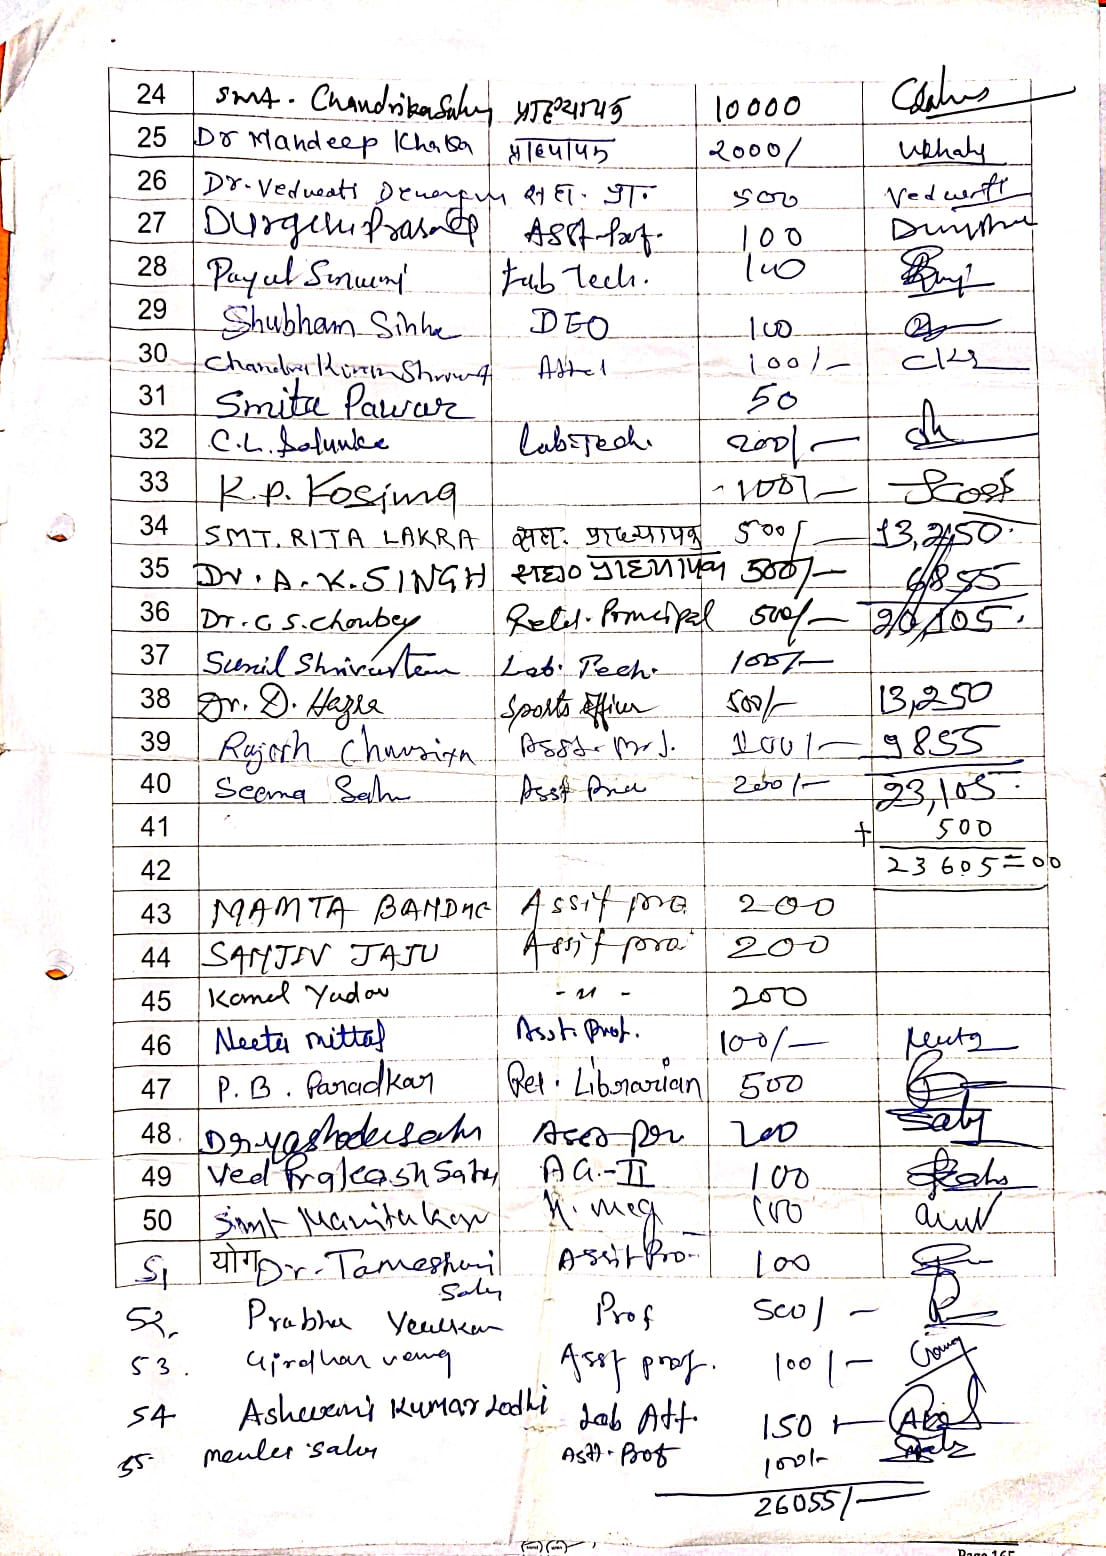 24 Smt. Chandrika Sahu प्राध्यापक 10000
25 Dr Mandeep Khalsa प्राध्यापक 2000/
26 Dr. Vedwati सहा. प्रा. 500 Vedwati
27 Durga Prasad Asst Prof. 100
28 Payal Lab Tech. 100
29 Shubham Sinha DEO 100
30 Chandra Kiran 100/-
31 Smita Pawar 50
32 C.L. Solunke Lab Tech. 200/-
33 K.P. Kosima 100/-
34 SMT. RITA LAKRA सहा. प्राध्यापक 500/ 13,250.
35 Dr. A. K. SINGH सहा० प्राध्यापक 500/- 6855
36 Dr. G S. Choubey Retd. Principal 500/- 20,105.
37 Sunil Shrivastava Lab. Tech. 100/-
38 Dr. D. Hazra Sports Officer 500/- 13,250
39 Rajesh 100/- 9855
40 Seema Sahu 200/- 23,105.
41 + 500
42 23605=00
43 MAMTA Assit pro 200
44 SANJIV JAJU Assit pro 200
45 Kamal Yadav -"- 200
46 Neeta Mittal Asst. Prof. 100/-
47 P. B. Paradkar Ret. Librarian 500
48. Dr Yashoda Sahu 200 Sahu
49 Ved Prakash Sahu AG.-II 100
50 Smt 100
51 योग Dr. Tameshwari Assit Pro 100
Sahu
52. Prabha Prof 500/-
53. Girdhar Asst prof. 100/-
54 Ashwani Kumar Lodhi Lab Att. 150
55 Sahu Asst. Prof 100/-
26055/-
Page 165